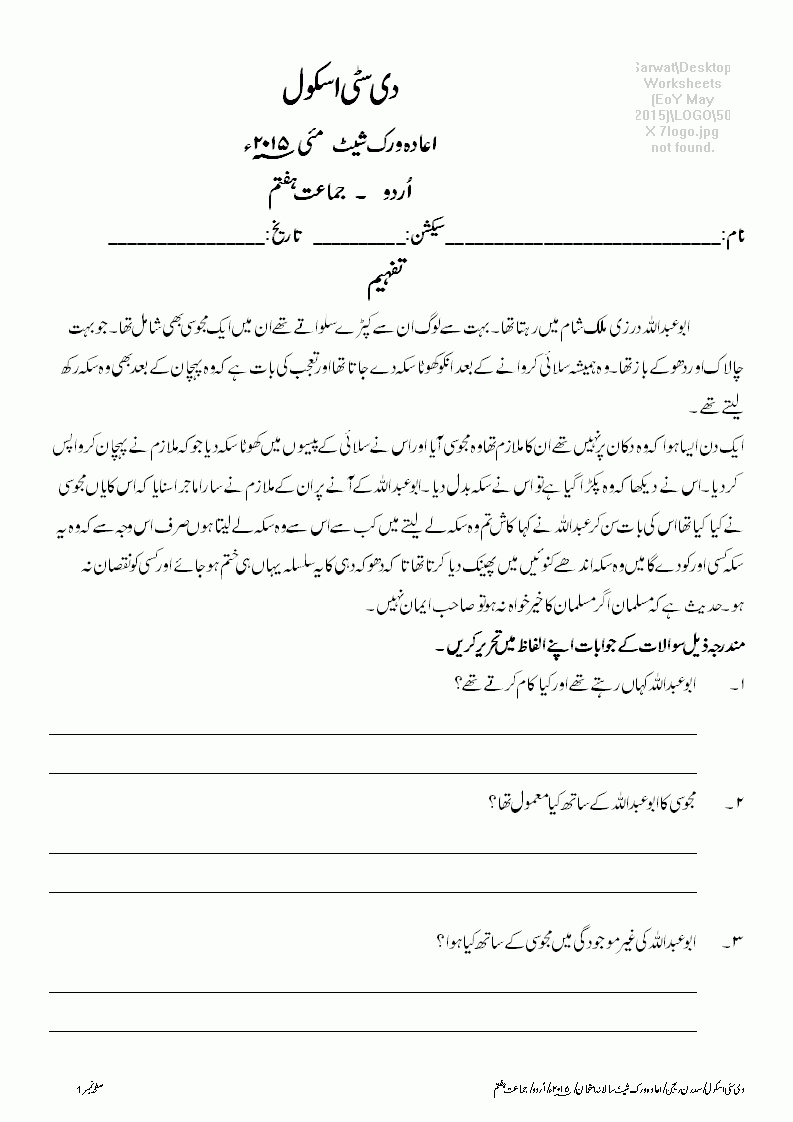 Sarwat\Desktop
Worksheets
(EoY May
2015)\LOGO\50
X 7logo.jpg
not found.
دی سٹی اسکول
اعادہ ورک شیٹ مئی ۲۰۱۵ء
اُردو ۔ جماعت ہفتم
نام:____________________________سیکشن:__________ تاریخ:________________
تفہیم
ابو عبداللہ درزی ملک شام میں رہتا تھا۔ بہت سے لوگ ان سے کپڑے سلواتے تھے ان میں ایک مجوسی بھی شامل تھا۔ جو بہت
چالاک اور دھوکے باز تھا۔ وہ ہمیشہ سلائی کروانے کے بعد انکو کھوٹا سکہ دے جاتا تھا اور تعجب کی بات ہے کہ وہ پہچان کے بعد بھی وہ سکہ رکھ
لیتے تھے ۔
ایک دن ایسا ہوا کہ وہ دکان پر نہیں تھے ان کا ملازم تھا وہ مجوسی آیا اور اس نے سلائی کے پیسوں میں کھوٹا سکہ دیا جو کہ ملازم نے پہچان کر واپس
کر دیا۔ اس نے دیکھا کہ وہ پکڑا گیا ہے تو اس نے سکہ بدل دیا ۔ ابو عبداللہ کے آنے پر ان کے ملازم نے سارا ماجرا سنایا کہ اس کا یاں مجوسی
نے کیا کیا تھا اس کی بات سن کر عبداللہ نے کہا کاش تم وہ سکہ لے لیتے میں کب سے اس سے وہ سکہ لے لیتا ہوں صرف اس وجہ سے کہ وہ یہ
سکہ کسی اور کو دے گا میں وہ سکہ اندھے کنوئیں میں پھینک دیا کرتا تھا تا کہ دھوکہ دہی کا یہ سلسلہ یہاں ہی ختم ہو جائے اور کسی کو نقصان نہ
ہو۔ حدیث ہے کہ مسلمان اگر مسلمان کا خیر خواہ نہ ہو تو صاحب ایمان نہیں ۔
مندرجہ ذیل سوالات کے جوابات اپنے الفاظ میں تحریر کریں ۔
۱۔ ابو عبداللہ کہاں رہتے تھے اور کیا کام کرتے تھے؟
۲۔ مجوسی کا ابو عبداللہ کے ساتھ کیا معمول تھا ؟
۳۔ ابو عبداللہ کی غیر موجودگی میں مجوسی کے ساتھ کیا ہوا ؟
دی سٹی اسکول/سدرن ریجن/اعادہ ورک شیٹ سالانہ امتحان/۲۰۱۵ء/اُردو/جماعت ہفتم صفحہ نمبر 1